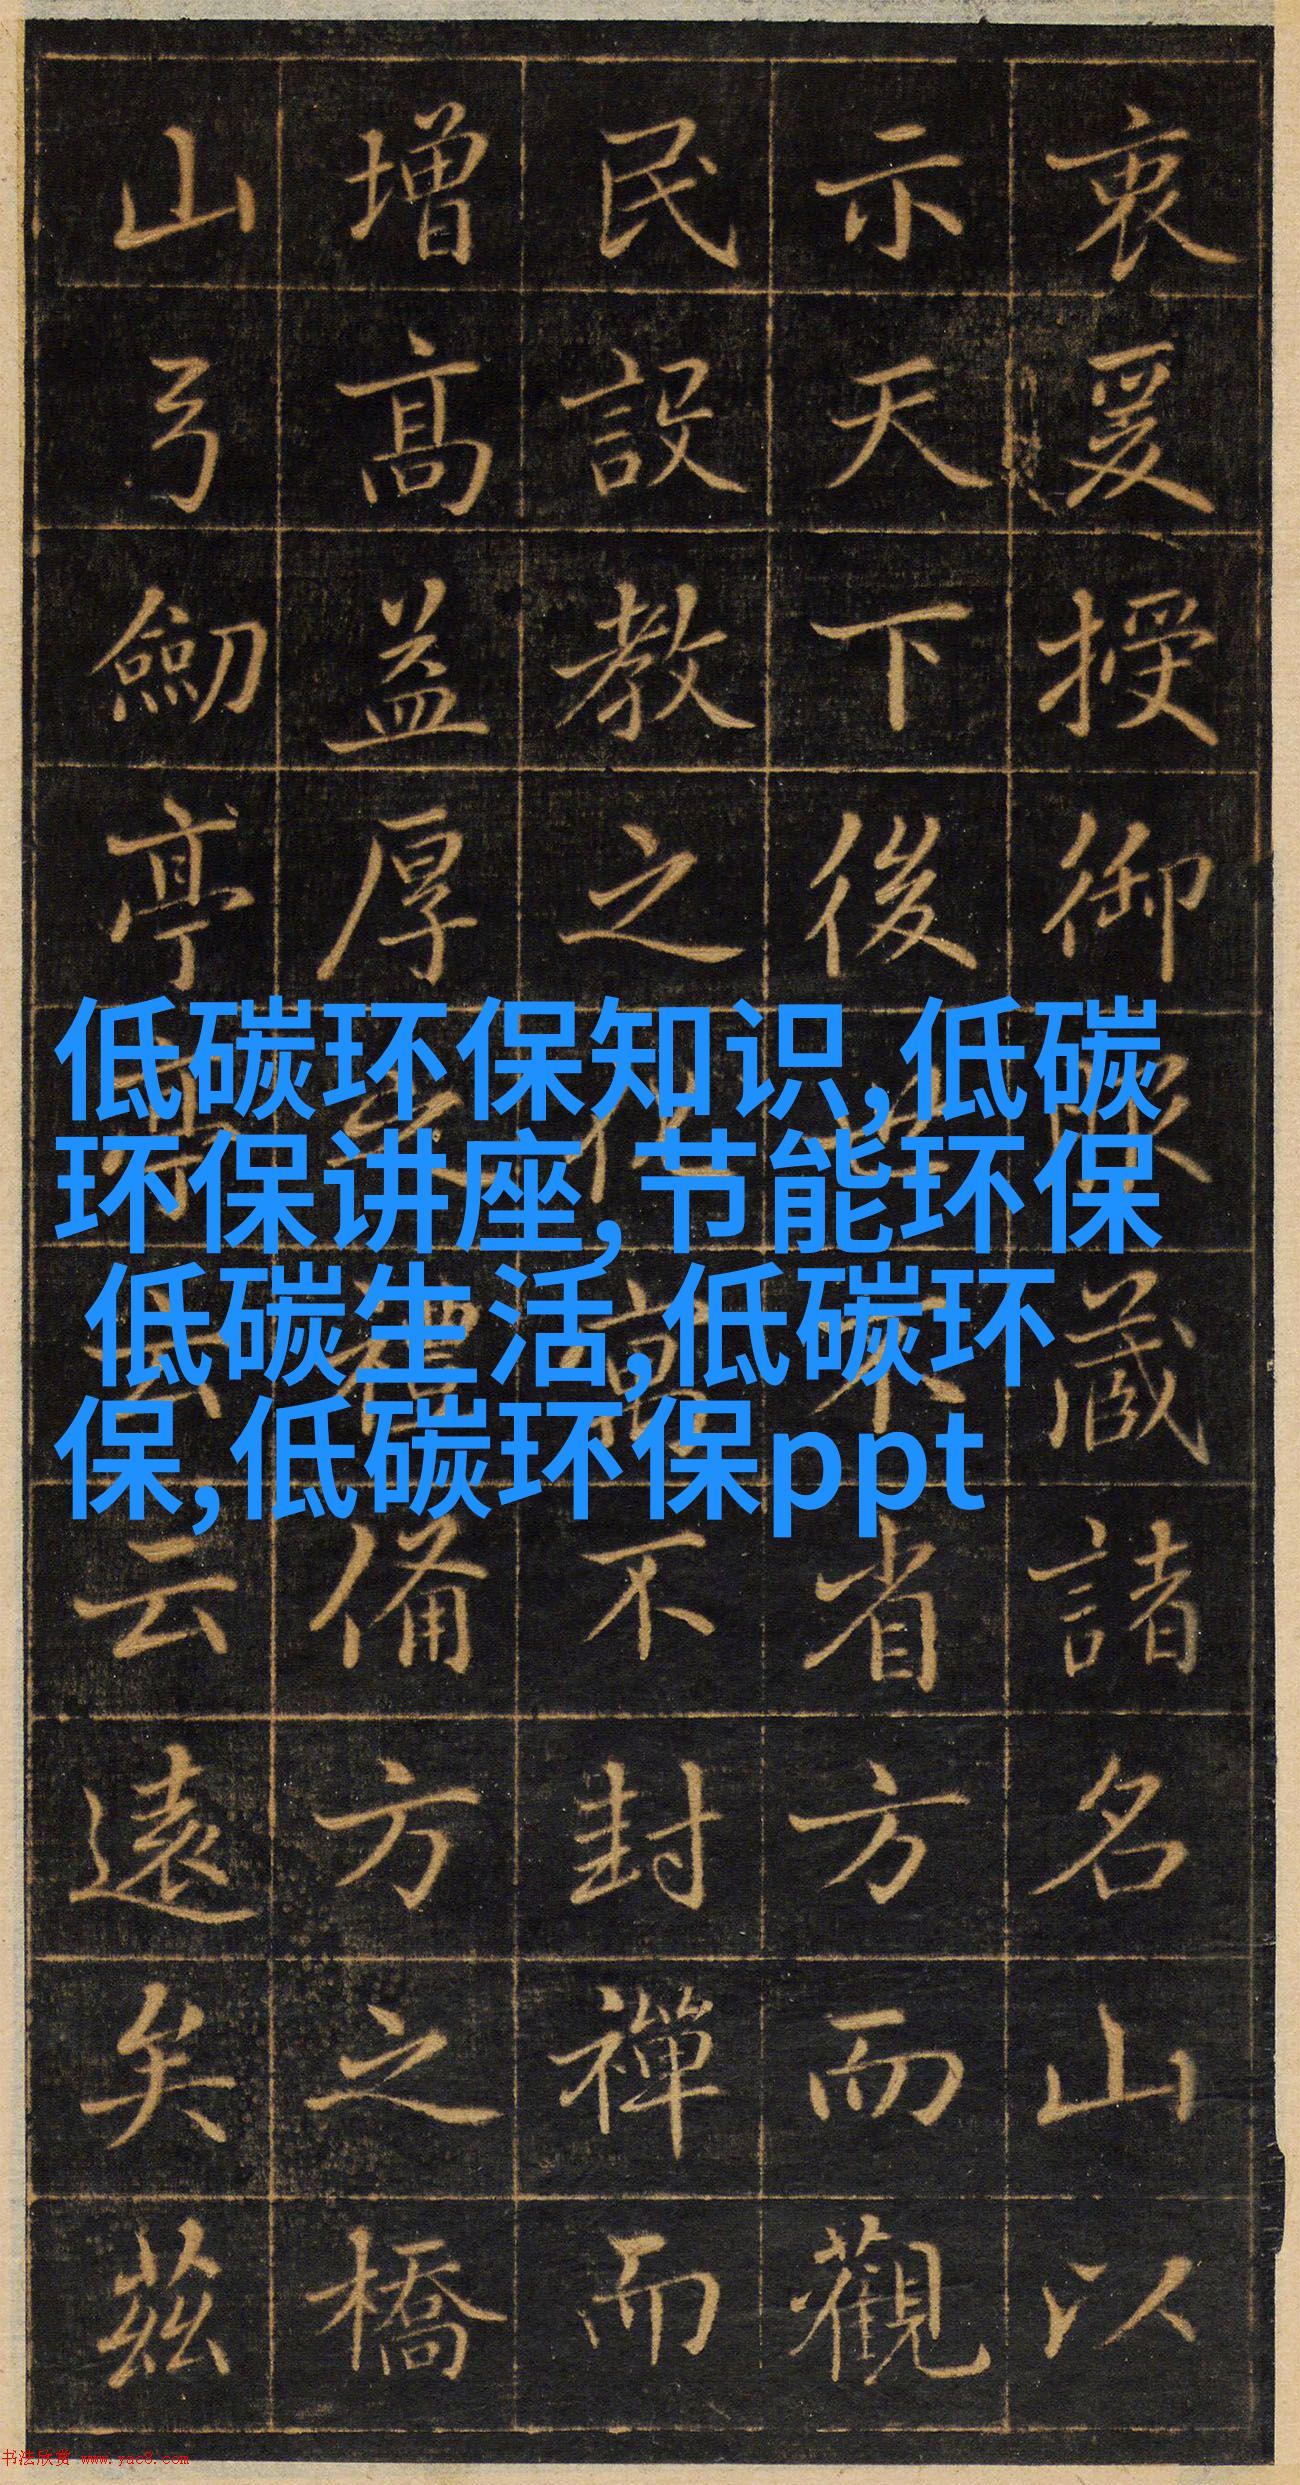 衷爰授御藏諸名山以
示天下後世不省方而觀
民設教之化不封禪而
增高益厚之禮備方之橋
山弓劒亭亭云云遠矣茲
低碳环保知识,低碳
环保讲座,节能环保
低碳生活,低碳环
保,低碳环保ppt
书法欣赏 www.yac8.com